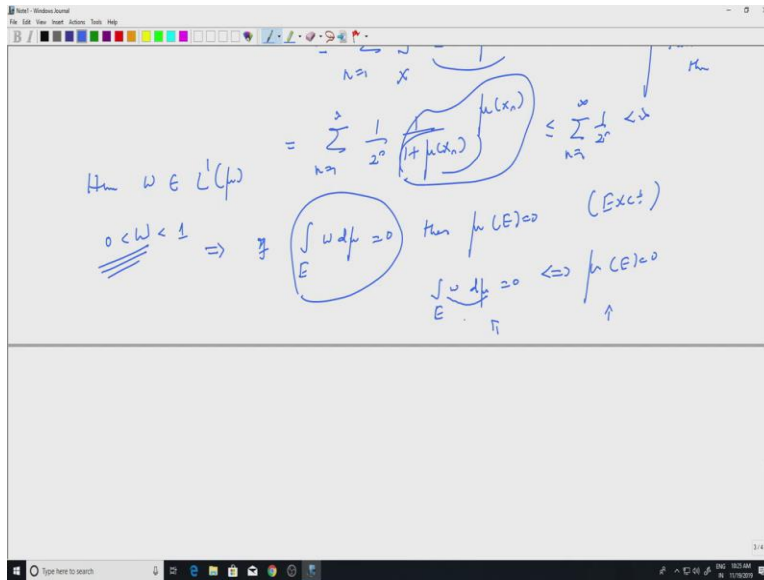 Note1 - Windows Journal
File Edit View Insert Actions Tools Help
n=1 X
= ∞∑n=1 1/2ⁿ 1/(1+μ(Xₙ)) μ(Xₙ) ≤ ∞∑n=1 1/2ⁿ < ∞
Hen W ∈ L¹(μ)
0 < W < 1 ⇒ If ∫E w dμ = 0 then μ(E)=0 (Exc!)
∫E w dμ = 0 <=> μ(E)=0
3/4
Type here to search
ENG 10:25 AM
IN 11/19/2019